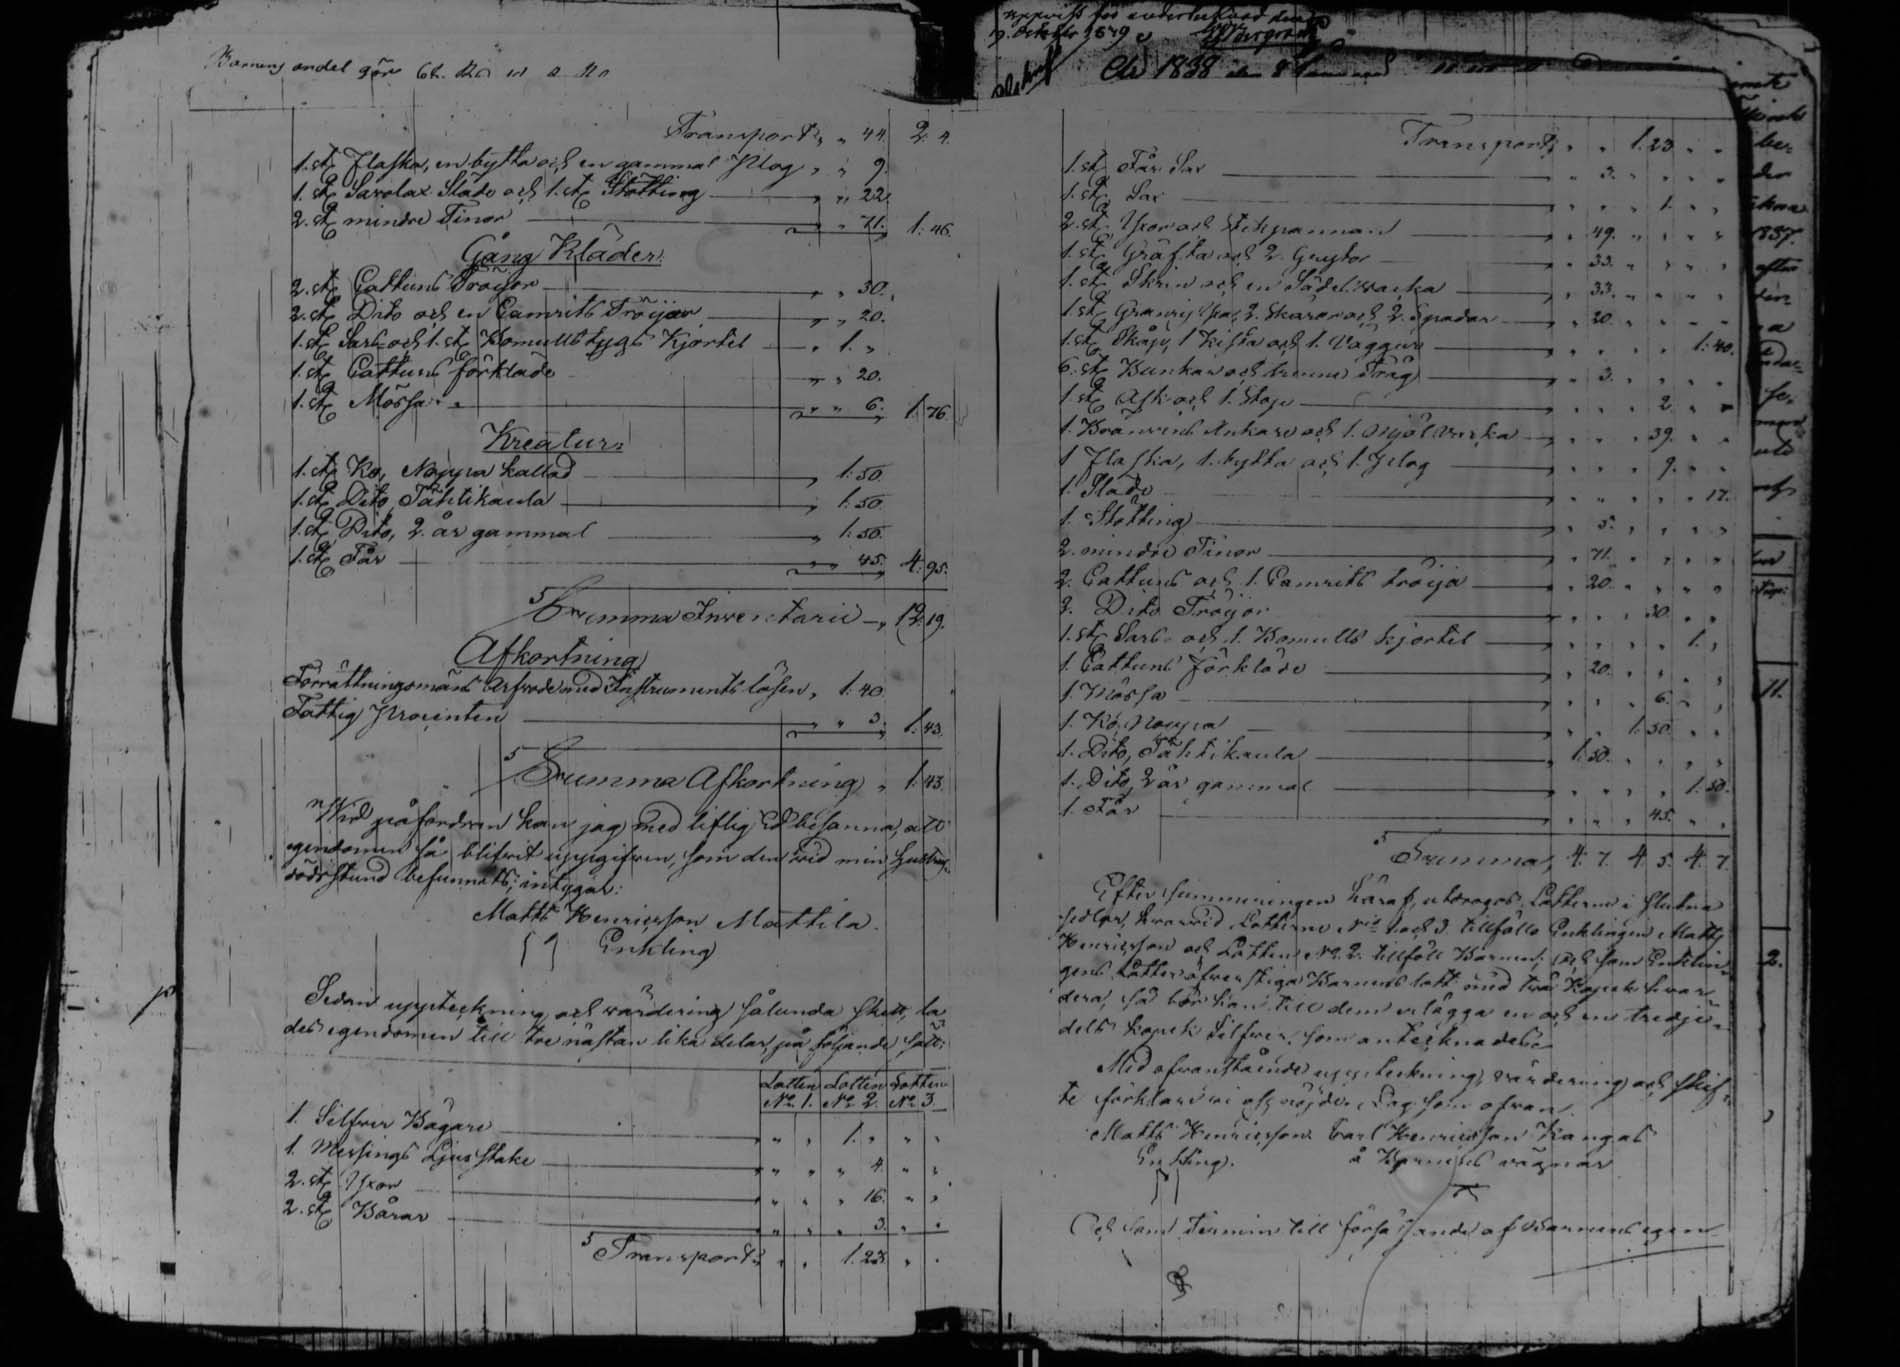 Barnens andel gör
Transport „ „ 44. 2. 4.
1. st. Flaska, en bytta och en gammal Plog „ „ 9.
1. st. Savolax Släde och 1. st. Stötting „ „ 22.
2. st. mindre Tinor „ „ 71. 1. 46.
Gång Kläder:
2. st. Cattuns Tröijor „ „ 30.
2. st. Dito och en Camrits Tröija „ „ 20.
1. st. Sars och 1. st. Bomullstygs Kjortel „ 1. „
1. st. Cattuns förkläde „ „ 20.
1. st. Mössa „ „ 6. 1. 76.
Kreatur:
1. st. Ko, kallad „ 1. 50.
1. st. Dito, Tähtikaula „ 1. 50.
1. st. Dito, 2. år gammal „ 1. 50.
1. st. Får „ „ 45. 4. 95.
Summa Inventarii „ 12. 19.
Afkortning
Förrättningsmäns Arfvode med Instruments lösen „ 1. 40
Fattig Procenten „ „ 3. 1. 43.
Summa Afkortning „ 1. 43.
Vid påfordran kan jag med liflig Ed besanna, att
egendomen så blifvit uppgifven, som den vid min hustrus
dödsstund befunnits; intygar:
Matts Henricsson Mattila.
Enkling
Sedan uppteckning och värdering sålunda skett, la
des egendomen till tre nästan lika delar, på följande sätt:
Lotten Lotten Lotten
No 1. No 2. No 3.
1. Silfver Bägare „ „ 1. „ „ „
1. Messings Ljusstake „ „ „ 4. „ „
2. st. Yxor „ „ „ 16. „ „
2. st. Bårar „ „ „ 3. „ „
Transport „ „ 1. 23. „ „
October
År 1838 den 8
Transport „ „ 1. 23 „ „
1. st. Får Sax „ 3. „ „ „ „
1. st. Sax „ „ „ 1. „ „
2. st. Yxor och Stekpannan „ 49. „ „ „ „
1. st. Gräfta och 2. Grytor „ 33. „ „ „ „
1. st. Skrin och en „ 33. „ „ „ „
1. st. 2. Skäror och 2. Spadar „ 20. „ „ „ „
1. st. Skåp, 1 Kista och 1. Vagga „ „ „ „ 1. 40.
6. st. Bunkar och Tråg „ 3. „ „ „ „
1. st. Ask och 1. Stop „ „ „ 2. „ „
1. Bränvins Ankare och 1. „ „ „ 39. „ „
1 Flaska, 1. bytta och 1. Plog „ „ „ 9. „ „
1. Släde „ „ „ „ „ 17.
1. Stötting „ 5. „ „ „ „
2. mindre Tinor „ 71. „ „ „ „
2. Cattuns och 1. Camrits tröija „ 20. „ „ „ „
2. Dito Tröijor „ „ „ 30. „ „
1. st. Sars och 1. Bomulls kjortel „ „ „ „ 1. „
1. Cattuns Förkläde „ 20. „ „ „ „
1. Mössa „ „ „ 6. „ „
1. Ko, „ „ 1. 50. „ „
1. Dito, Tähtikaula 1. 50. „ „ „ „
1. Dito, 2 år gammal „ „ „ „ 1. 50.
1. Får „ „ „ 45. „ „
Summa, 4. 7. 4. 5. 4. 7.
Efter summeringen häraf, utdrogos Lotterne i slutna
sedlar, hvarvid Lotterne No 1 och 3. tillföllo Enklingen Matts
Henricsson och Lotten No 2. tillföll Barnen; och som Enklin-
gens Lotter öfverstiga Barnens lott med två Kopek hvar-
dera, så bör han till dem erlägga en och en tredje-
dels kopek Silfver, som antecknades.
Med ofvanstående uppteckning, värdering och skif-
te förklare vi oss nöjde. Dag som ofvan.
Matts Henricsson Carl Henricsson Kangas
Enkling. å Barnens vägnar
Och som Termin till försäljande af Barnens egen